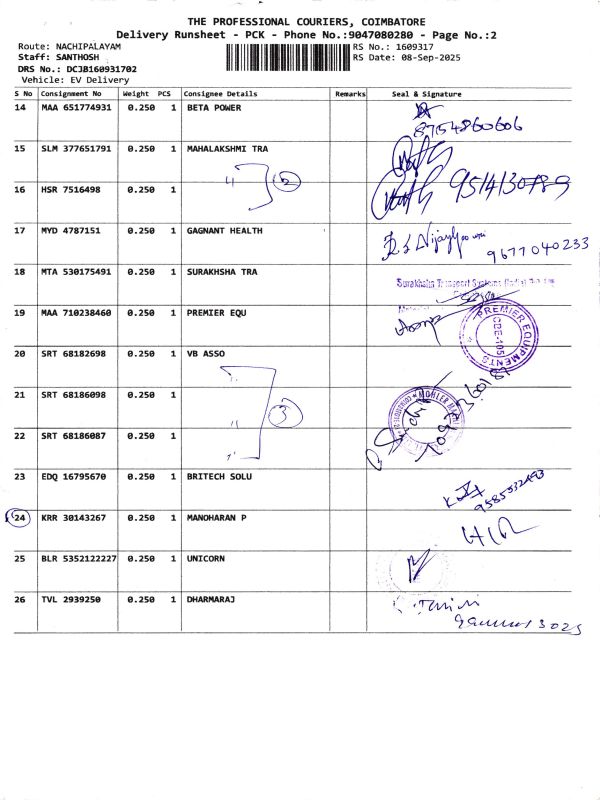 THE PROFESSIONAL COURIERS, COIMBATORE
Delivery Runsheet - PCK - Phone No.:9047080280 - Page No.:2
Route: NACHIPALAYAM RS No.: 1609317
Staff: SANTHOSH RS Date: 08-Sep-2025
DRS No.: DCJB160931702
Vehicle: EV Delivery
S No Consignment No Weight PCS Consignee Details Remarks Seal & Signature
14 MAA 651774931 0.250 1 BETA POWER
8754860606
15 SLM 377651791 0.250 1 MAHALAKSHMI TRA
16 HSR 7516498 0.250 1 2 9514130789
17 MYD 4787151 0.250 1 GAGNANT HEALTH
9677040233
18 MTA 530175491 0.250 1 SURAKHSHA TRA
Surakhsha Transport Systems
19 MAA 710238460 0.250 1 PREMIER EQU
PREMIER EQUIPMENTS
CBE-105
20 SRT 68182698 0.250 1 VB ASSO
21 SRT 68186098 0.250 1 3
22 SRT 68186087 0.250 1
23 EDQ 16795670 0.250 1 BRITECH SOLU
9585532493
24 KRR 30143267 0.250 1 MANOHARAN P
25 BLR 5352122227 0.250 1 UNICORN
26 TVL 2939250 0.250 1 DHARMARAJ